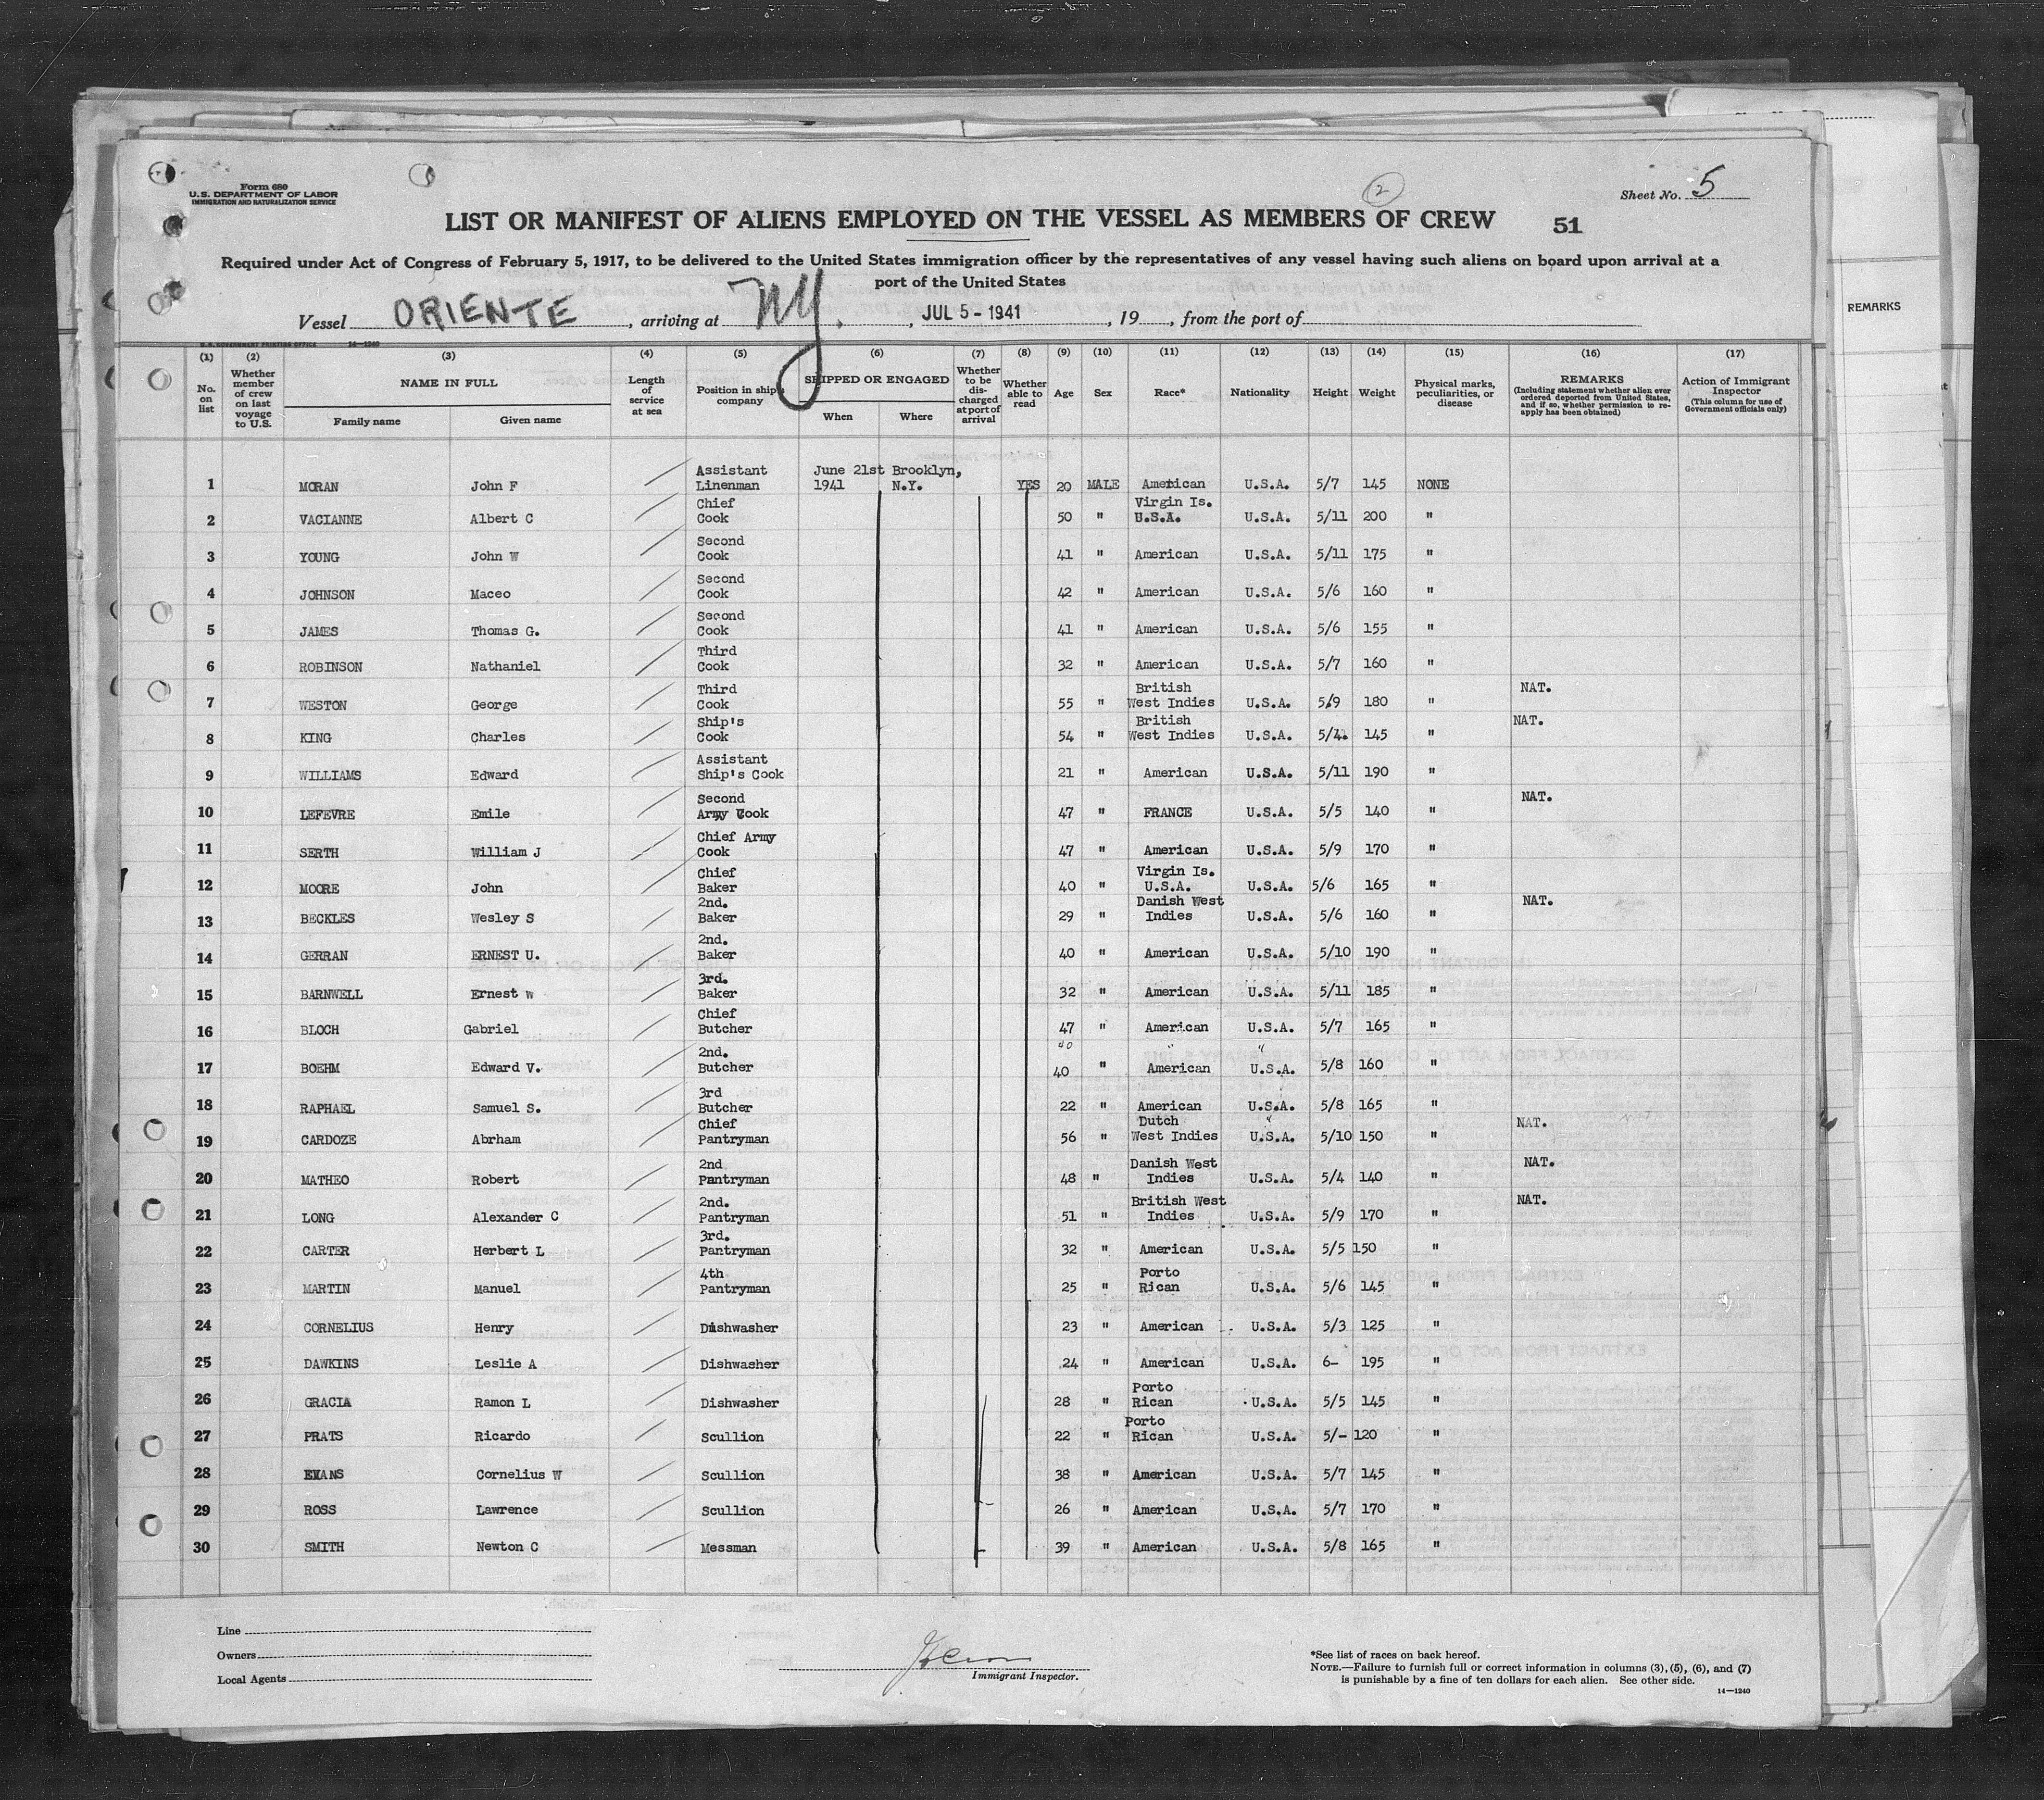 Form 680
U.S. DEPARTMENT OF LABOR
IMMIGRATION AND NATURALIZATION SERVICE
2
Sheet No. 5
LIST OR MANIFEST OF ALIENS EMPLOYED ON THE VESSEL AS MEMBERS OF CREW 51
Required under Act of Congress of February 5, 1917, to be delivered to the United States immigration officer by the representatives of any vessel having such aliens on board upon arrival at a
port of the United States
Vessel ORIENTE, arriving at NY., JUL 5 - 1941, 19, from the port of
REMARKS
U.S. GOVERNMENT PRINTING OFFICE 14—1240
(1) (2) (3) (4) (5) (6) (7) (8) (9) (10) (11) (12) (13) (14) (15) (16) (17)
No. on list
Whether member of crew on last voyage to U.S.
NAME IN FULL
Family name
Given name
Length of service at sea
Position in ship's company
SHIPPED OR ENGAGED
When
Where
Whether to be discharged at port of arrival
Whether able to read
Age
Sex
Race*
Nationality
Height
Weight
Physical marks, peculiarities, or disease
REMARKS
(Including statement whether alien ever ordered deported from United States, and if so, whether permission to reapply has been obtained)
Action of Immigrant Inspector
(This column for use of Government officials only)
1 MORAN John F Assistant Linenman June 21st 1941 Brooklyn, N.Y. YES 20 MALE American U.S.A. 5/7 145 NONE
2 VACIANNE Albert C Chief Cook 50 " Virgin Is. U.S.A. U.S.A. 5/11 200 "
3 YOUNG John W Second Cook 41 " American U.S.A. 5/11 175 "
4 JOHNSON Maceo Second Cook 42 " American U.S.A. 5/6 160 "
5 JAMES Thomas G. Second Cook 41 " American U.S.A. 5/6 155 "
6 ROBINSON Nathaniel Third Cook 32 " American U.S.A. 5/7 160 "
7 WESTON George Third Cook 55 " British West Indies U.S.A. 5/9 180 " NAT.
8 KING Charles Ship's Cook 54 " British West Indies U.S.A. 5/4. 145 " NAT.
9 WILLIAMS Edward Assistant Ship's Cook 21 " American U.S.A. 5/11 190 "
10 LEFEVRE Emile Second Army Cook 47 " FRANCE U.S.A. 5/5 140 " NAT.
11 SERTH William J Chief Army Cook 47 " American U.S.A. 5/9 170 "
12 MOORE John Chief Baker 40 " Virgin Is. U.S.A. U.S.A. 5/6 165 "
13 BECKLES Wesley S 2nd. Baker 29 " Danish West Indies U.S.A. 5/6 160 " NAT.
14 GERRAN ERNEST U. 2nd. Baker 40 " American U.S.A. 5/10 190 "
15 BARNWELL Ernest W 3rd. Baker 32 " American U.S.A. 5/11 185 "
16 BLOCH Gabriel Chief Butcher 47 " American U.S.A. 5/7 165 "
40 " "
17 BOEHM Edward V. 2nd. Butcher 40 " American U.S.A. 5/8 160 "
18 RAPHAEL Samuel S. 3rd Butcher 22 " American U.S.A. 5/8 165 "
19 CARDOZE Abrham Chief Pantryman 56 " Dutch West Indies U.S.A. 5/10 150 " NAT.
20 MATHEO Robert 2nd Pantryman 48 " Danish West Indies U.S.A. 5/4 140 " NAT.
21 LONG Alexander C 2nd. Pantryman 51 " British West Indies U.S.A. 5/9 170 " NAT.
22 CARTER Herbert L 3rd. Pantryman 32 " American U.S.A. 5/5 150 "
23 MARTIN Manuel 4th Pantryman 25 " Porto Rican U.S.A. 5/6 145 "
24 CORNELIUS Henry Dishwasher 23 " American U.S.A. 5/3 125 "
25 DAWKINS Leslie A Dishwasher 24 " American U.S.A. 6- 195 "
26 GRACIA Ramon L Dishwasher 28 " Porto Rican U.S.A. 5/5 145 "
27 PRATS Ricardo Scullion 22 " Porto Rican U.S.A. 5/- 120 "
28 EVANS Cornelius W Scullion 38 " American U.S.A. 5/7 145 "
29 ROSS Lawrence Scullion 26 " American U.S.A. 5/7 170 "
30 SMITH Newton C Messman 39 " American U.S.A. 5/8 165 "
Line
Owners
Local Agents
Immigrant Inspector.
*See list of races on back hereof.
NOTE.—Failure to furnish full or correct information in columns (3), (5), (6), and (7)
is punishable by a fine of ten dollars for each alien. See other side.
14—1240